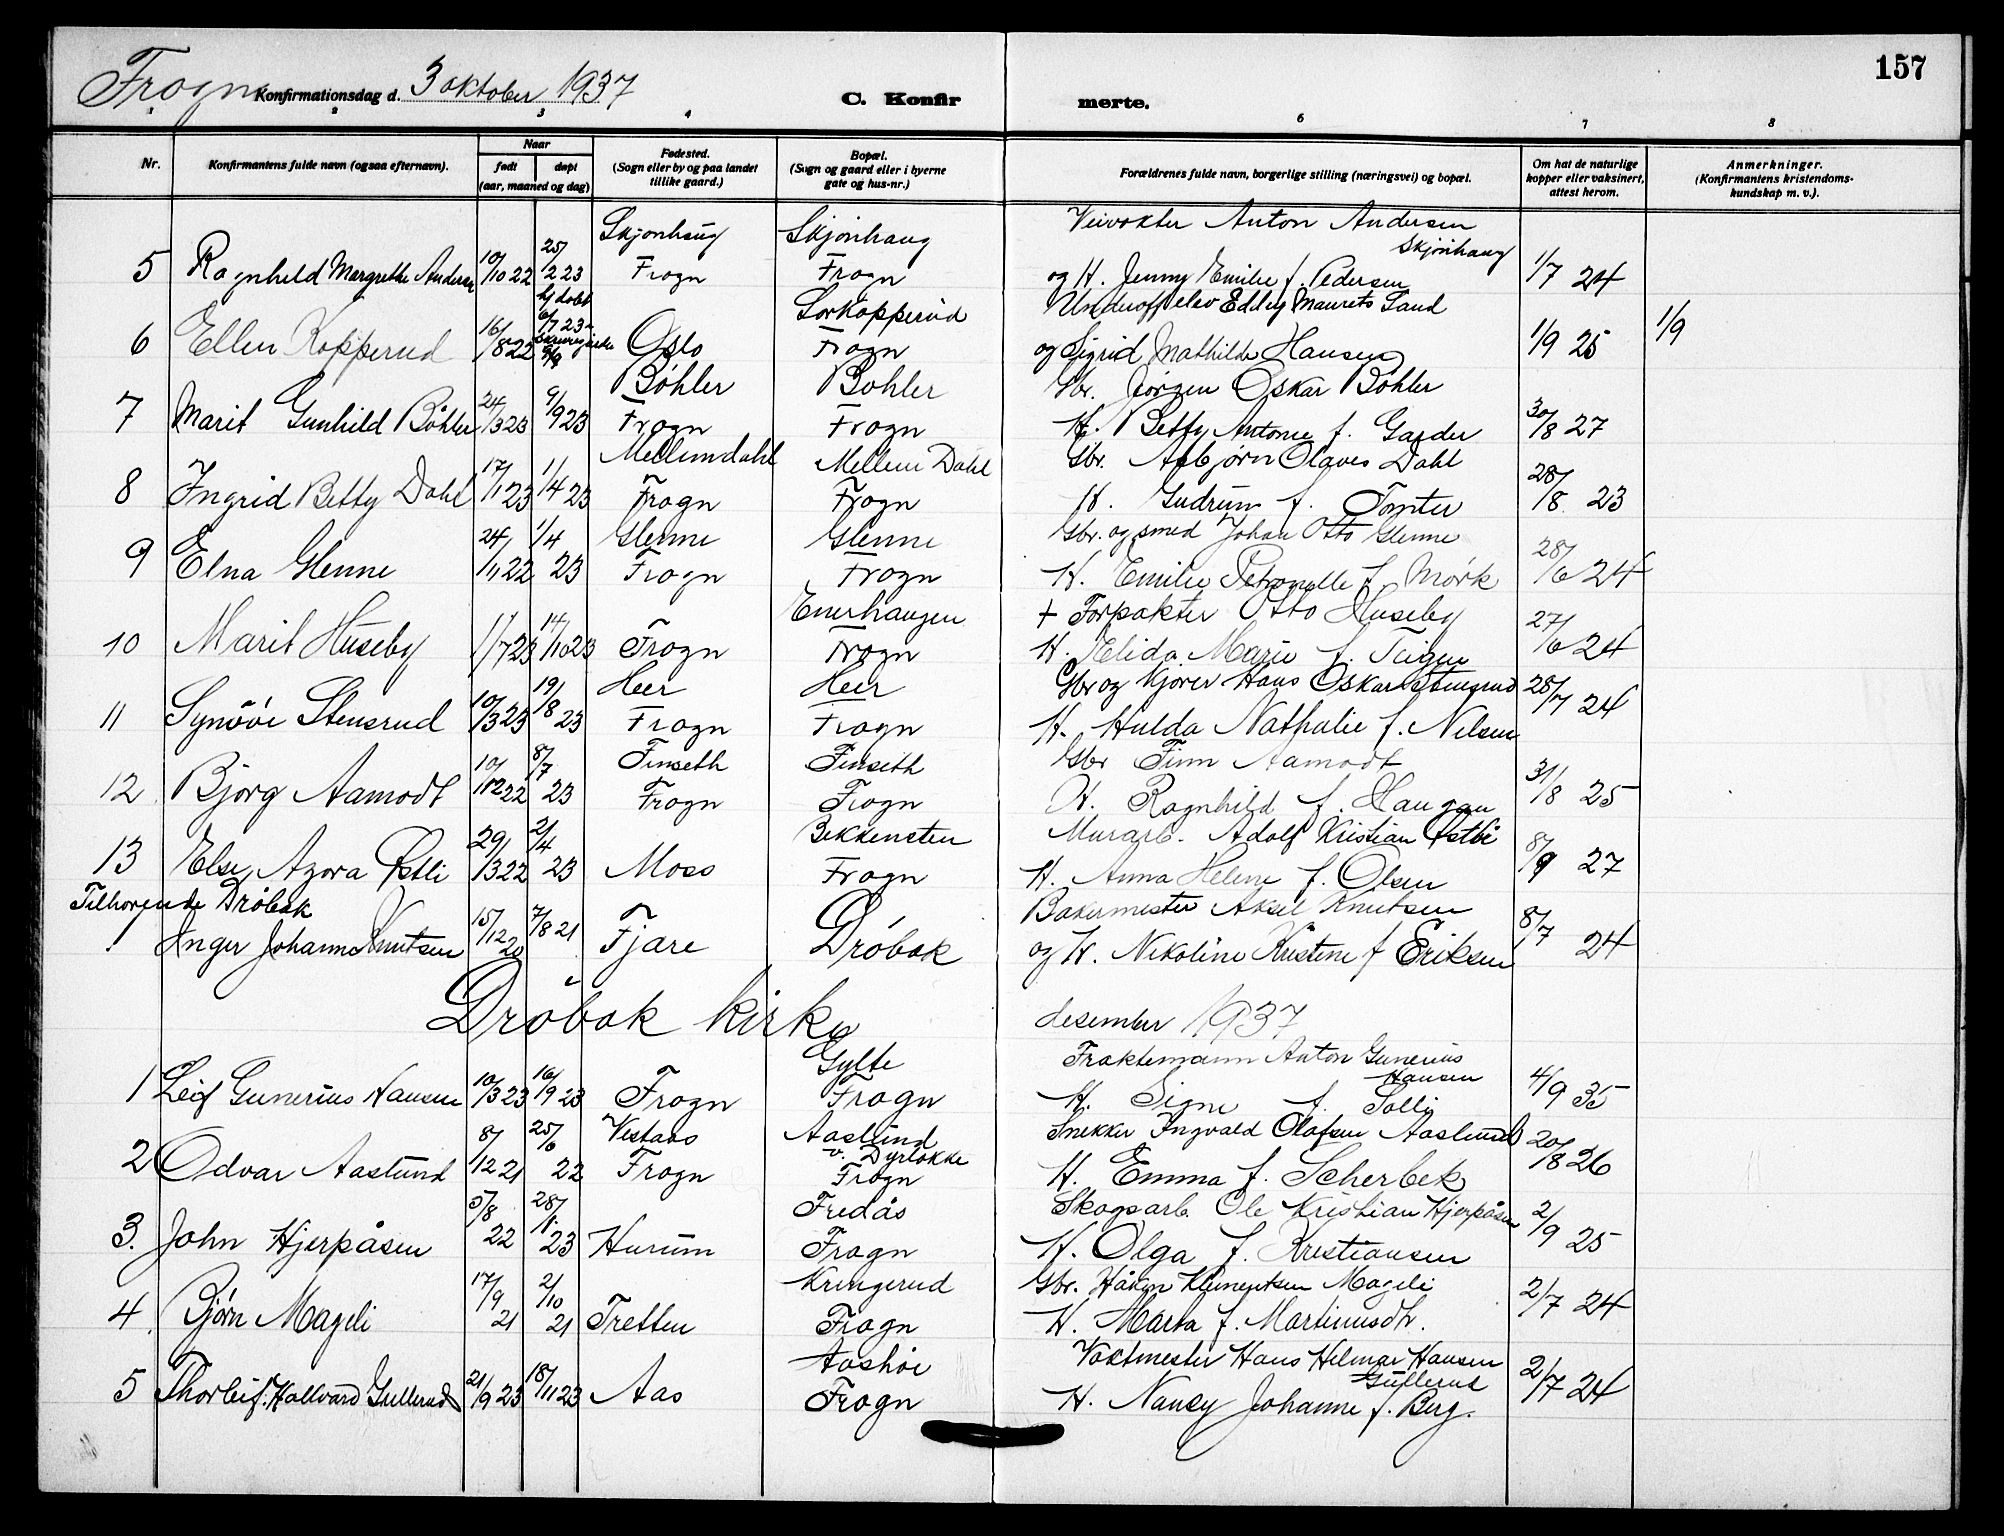 157
Frogn Konfirmationsdag d. 3 oktober 1937 C. Konfirmerte.
2 3 4 6 7 8
Nr. Konfirmantens fulde navn (ogsaa efternavn). Naar født døpt (aar, maaned og dag) Fødested. (Sogn eller by og paa landet tillike gaard.) Bopæl. (Sogn og gaard eller i byerne gate og hus-nr.) Forældrenes fulde navn, borgerlige stilling (næringsvei) og bopæl. Om hat de naturlige kopper eller vaksinert, attest herom. Anmerkninger. (Konfirmantens kristendomskundskap m. v.).
Skjønhaug Skjønhaug Veivokter Anton Andersen Skjønhaug
5 Ragnhild Margrethe Andersen 10/10 22 25/12 23 Frogn Frogn og H. Jenny Emilie f. Pedersen 1/7 24
hj.døbt Sorkopperud Underoff.elev Eddey Maurets Sand
6 Ellen Kopperud 16/8 22 6/7 23 Oslo Frogn og Sigrid Mathilde Hansen 1/9 25 1/9
Bøhler Bøhler Gbr. Jørgen Oskar Bøhler
7 Marit Gunhild Bøhler 24/3 23 9/9 23 Frogn Frogn H. Betty Antonie f. Garder 30/8 27
Mellemdahl Mellem Dahl Gbr. Asbjørn Olaves Dahl
8 Ingrid Betty Dahl 17/1 23 1/4 23 Frogn Frogn H. Gudrun f. Tomter 28/8 23
Glenne Glenne Gbr. og smed Johan Otto Glenne
9 Elna Glenne 24/11 22 1/4 23 Frogn Frogn H. Emilie Petronelle f. Mørk 28/6 24
Enerhaugen + Forpakter Otto Huseby
10 Marit Huseby 1/7 23 14/10 23 Frogn Frogn H. Elida Marie f. Teigen 27/6 24
Heer Heer Gbr og kjører Hans Oskar Stensrud
11 Synøve Stensrud 10/3 23 19/8 23 Frogn Frogn H. Hulda Nathalie f. Nilsen 28/7 24
Finseth Finseth Gbr Finn Aamodt
12 Bjørg Aamodt 10/12 22 8/7 23 Frogn Frogn H. Ragnhild f. Haugan 31/8 25
Bekkensten Murarb. Adolf Kristian Østli
13 Else Azora Østli 29/3 22 2/4 23 Moss Frogn H. Anna Helene f. Olsen 8/9 27
Tilhørende Drøbak Bakermester Aksel Knutsen
1 Inger Johanne Knutsen 15/12 20 7/8 21 Fjære Drøbak og H. Nikoline Kristine f Eriksen 8/7 24
Drøbak kirke desember 1937
Gylte Fraktemann Anton Gunerius Hansen
1 Leif Gunerius Hansen 10/3 23 16/9 23 Frogn Frogn H. Signe f. Solli 4/9 35
Vestaas Aaslund v. Dyrløkke Snekker Ingvald Olafsen Aaslund
2 Odvar Aaslund 8/12 21 25/6 22 Frogn Frogn H. Emma f. Scherbek 20/8 26
Fredås Skogsarb. Ole Kristian Hjerpåsen
3. John Hjerpåsen 5/8 22 28/1 23 Hurum Frogn H. Olga f. Kristiansen 2/9 25
Kringerud Gbr. Håkon Klementsen Mageli
4. Bjørn Mageli 17/9 21 2/10 21 Tretten Frogn H. Marta f. Martinusdtr. 2/7 24
Aashøi Vaktmester Hans Hilmar Hansen Gullerud
5 Thorleif Hallvard Gullerud 21/9 23 18/11 23 Aas Frogn H. Nancy Johanne f. Berg. 2/7 24